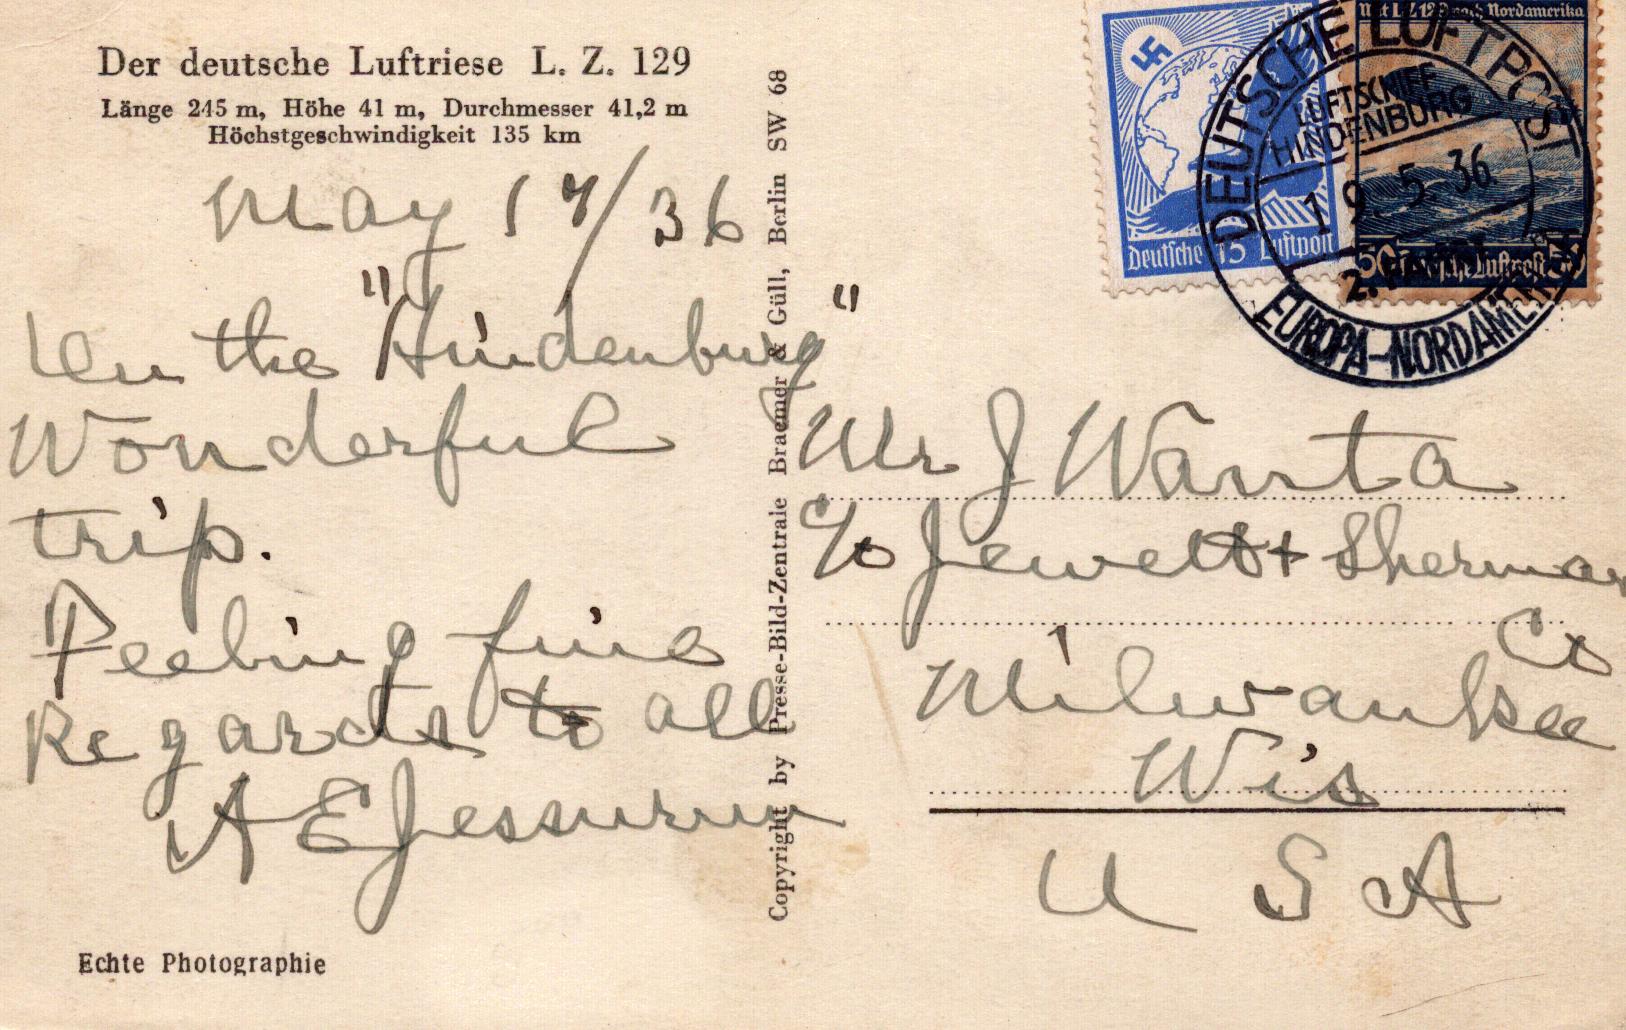 Der deutsche Luftriese L. Z. 129
Länge 245 m, Höhe 41 m, Durchmesser 41,2 m
Höchstgeschwindigkeit 135 km
May 17/36
On the "Hindenburg"
Wonderful
trip.
Feeling fine
Regards to all
A E Jessurun
Echte Photographie
Copyright by Presse-Bild-Zentrale Braemer & Güll, Berlin SW 68
Deutsche 15 Luftpost
Mit L.Z. 129 nach Nordamerika
50 Deutsche Luftpost 50
DEUTSCHE LUFTPOST
LUFTSCHIFF
HINDENBURG
19.5.36
EUROPA-NORDAMERIKA
Mr J Wanta
c/o Jewett + Sherman
Co
Milwaukee
Wis
U S A